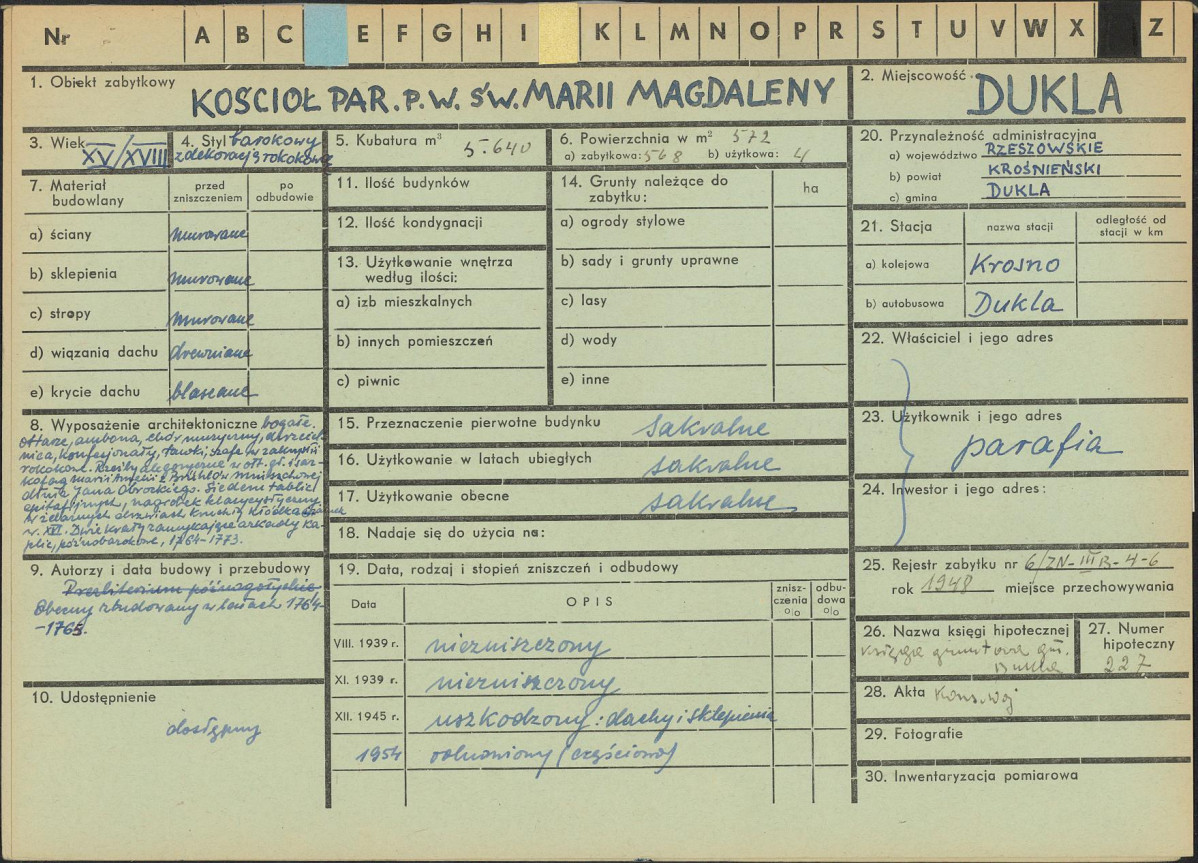 Nr A B C E F G H I K L M N O P R S T U V W X Z
1. Obiekt zabytkowy KOŚCIOŁ PAR. P.W. ŚW. MARII MAGDALENY
2. Miejscowość DUKLA
3. Wiek XV/XVIII
4. Styl barokowy
z dekoracją rokokową
5. Kubatura m³ 5.640
6. Powierzchnia w m² 572
a) zabytkowa: 568 b) użytkowa: 4
20. Przynależność administracyjna
a) województwo RZESZOWSKIE
b) powiat KROŚNIEŃSKI
c) gmina DUKLA
7. Materiał
budowlany
przed
zniszczeniem
po
odbudowie
a) ściany murowane
b) sklepienia murowane
c) stropy murowane
d) wiązania dachu drewniane
e) krycie dachu blaszane
11. Ilość budynków
12. Ilość kondygnacji
13. Użytkowanie wnętrza
według ilości:
a) izb mieszkalnych
b) innych pomieszczeń
c) piwnic
14. Grunty należące do
zabytku:
ha
a) ogrody stylowe
b) sady i grunty uprawne
c) lasy
d) wody
e) inne
21. Stacja
nazwa stacji
odległość od
stacji w km
a) kolejowa Krosno
b) autobusowa Dukla
22. Właściciel i jego adres
23. Użytkownik i jego adres
parafia
24. Inwestor i jego adres:
8. Wyposażenie architektoniczne bogate.
ołtarze, ambona, chór muzyczny, chrzciel-
nica, konfesjonały, ławki, szafa w zakrystii
rokokowe. Rzeźby alegoryczne w ołt. gł. i sar-
kofag Marii Amelii z Brühlów Mniszchowej
dłuta Jana Obrockiego. Siedem tablic
epitafijnych, nagrobek klasycystyczny
w żelaznych drzwiach kruchty kłódka
w. XVI. Dwie kraty zamykające arkady ka-
plic, późnobarokowe, 1764-1773.
15. Przeznaczenie pierwotne budynku sakralne
16. Użytkowanie w latach ubiegłych sakralne
17. Użytkowanie obecne sakralne
18. Nadaje się do użycia na:
9. Autorzy i data budowy i przebudowy
Prezbiterium późnogotyckie
Obecny zbudowany w latach 1764-
-1765.
10. Udostępnienie
dostępny
19. Data, rodzaj i stopień zniszczeń i odbudowy
Data
OPIS
znisz-
czenia
%
odbu-
dowa
%
VIII. 1939 r. niezniszczony
XI. 1939 r. niezniszczony
XII. 1945 r. uszkodzony: dachy i sklepienia
1954 odnowiony (częściowo)
25. Rejestr zabytku nr 6/ZN-III B-4-6
rok 1948 miejsce przechowywania
26. Nazwa księgi hipotecznej
księga gruntowa gm.
Dukla
27. Numer
hipoteczny
227
28. Akta Kons. Woj
29. Fotografie
30. Inwentaryzacja pomiarowa